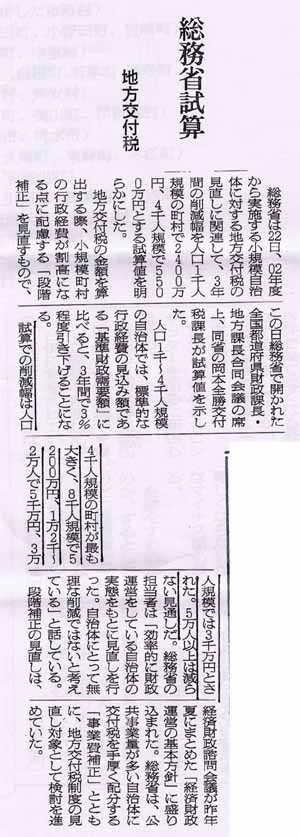 総務省試算
地方交付税
総務省は22日、02年度
から実施する小規模自治
体に対する地方交付税の
見直しに関連して、3年
間の削減幅を人口1千人
規模の町村で2400万
円、4千人規模で550
0万円とする試算値を明
らかにした。
地方交付税の金額を算
出する際、小規模町村
の行政経費が割高にな
る点に配慮する「段階
補正」を見直すもので、
この日総務省で開かれた
全国都道府県財政課長・
地方課長合同会議の席
上、同省の岡本全勝交付
税課長が試算値を示し
た。
人口1千〜4千人規模
の自治体では、標準的な
行政経費の見込み額であ
る「基準財政需要額」に
比べると、3年間で3%
程度引き下げることにな
る。
試算での削減幅は人口
4千人規模の町村が最も
大きく、8千人規模で5
200万円、1万2千〜
2万人で5千万円、3万
人規模では3千万円とさ
れた。5万人以上は減ら
ない見通した。総務省の
担当者は「効率的に財政
運営をしている自治体の
実態をもとに見直しを行
った。自治体にとって無
理な削減ではないと考え
ている」と話している。
段階補正の見直しは、
経済財政諮問会議が昨年
夏にまとめた「経済財政
運営の基本方針」に盛り
込まれた。総務省は、公
共事業量が多い自治体に
交付税を手厚く配分する
「事業費補正」ととも
に、地方交付税制度の見
直し対象として検討を進
めていた。